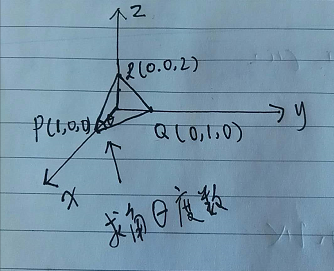 z
R(0,0,2)
P(1,0,0)
θ
Q(0,1,0)
y
x
求角θ度数